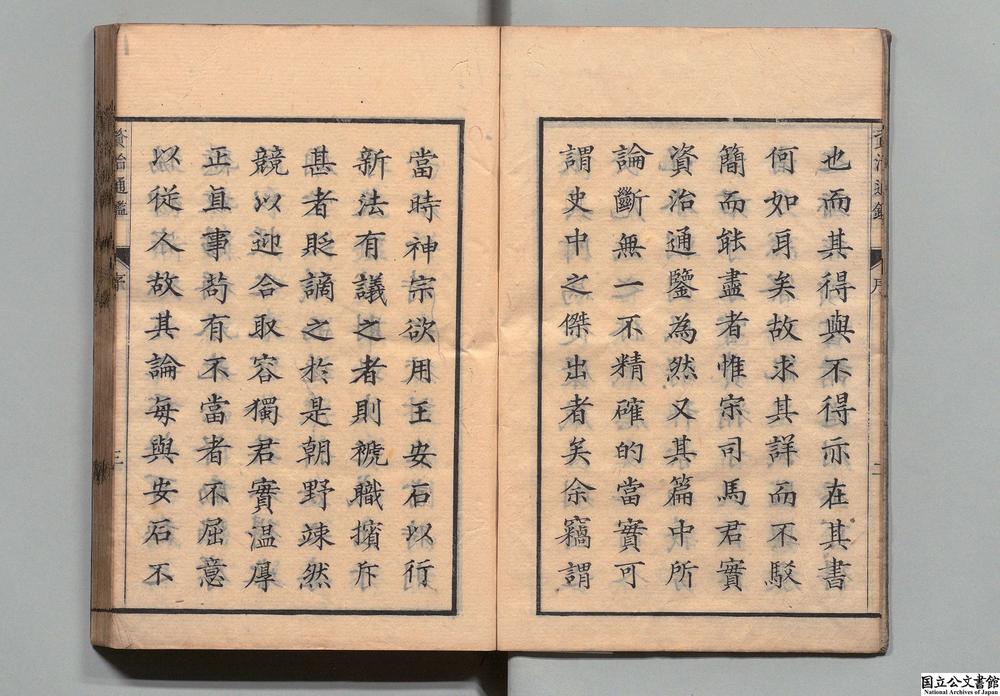 也而其得與不得亦在其書
何如耳矣故求其詳而不駁
簡而能盡者惟宗司馬君實
資治通鑒為然又其篇中所
論斷無一不精確的當實可
謂史中之傑出者矣余竊謂
二
當時神宗欲用王安石以行
新法有議之者則褫職擯斥
甚者貶謫之於是朝野竦然
競以迎合取容獨君實温厚
正直事苟有不當者不屈意
以從人故其論每與安石不
資治通鑑
序
三
国立公文書館
National Archives of Japan